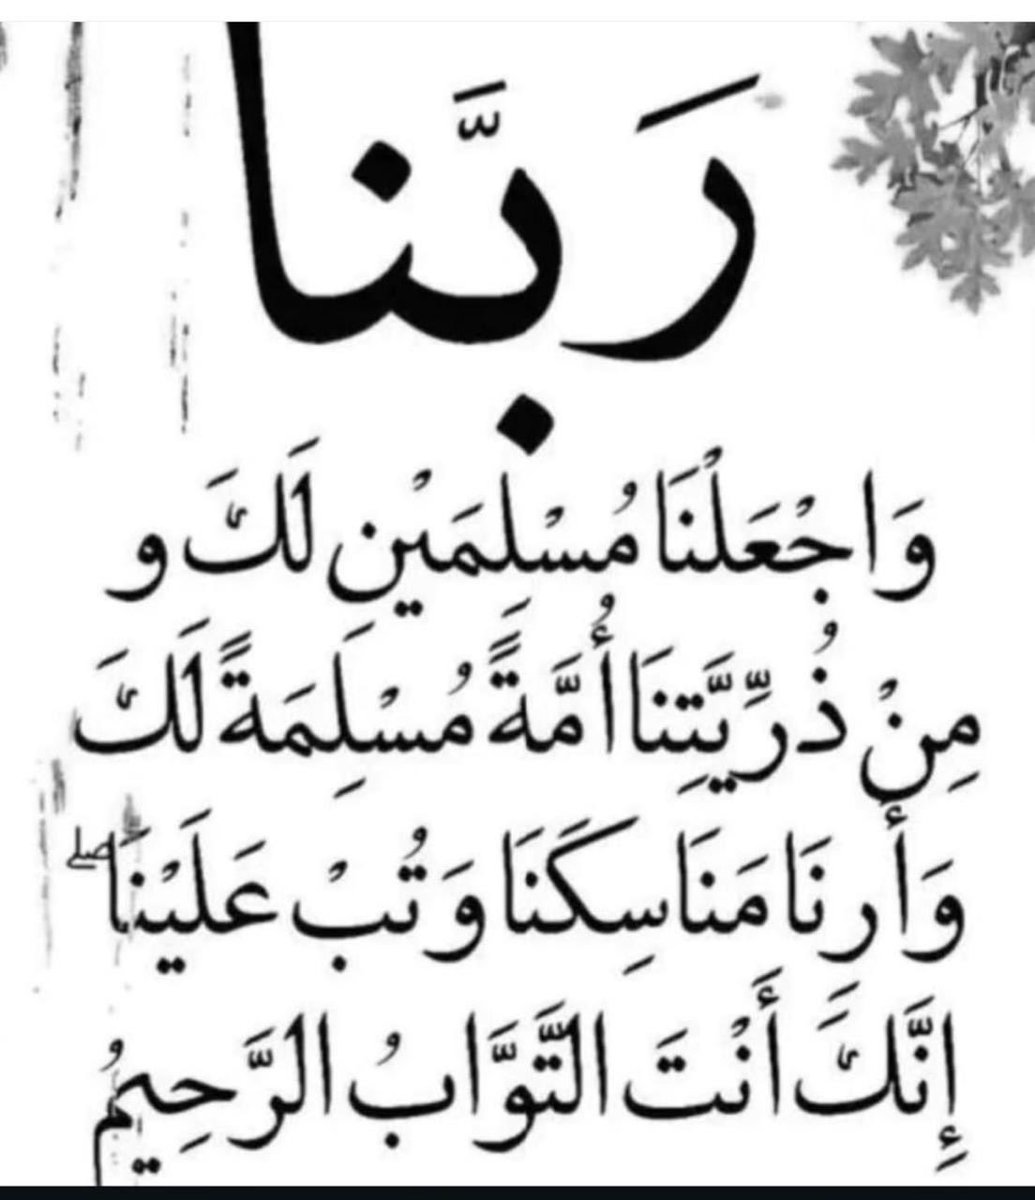 رَبَّنا
وَاجْعَلْنَا مُسْلِمَيْنِ لَكَ و
مِنْ ذُرِّيَّتِنَا أُمَّةً مُسْلِمَةً لَكَ
وَأَرِنَا مَنَاسِكَنَا وَتُبْ عَلَيْنَا ۖ
إِنَّكَ أَنْتَ التَّوَّابُ الرَّحِيمُ